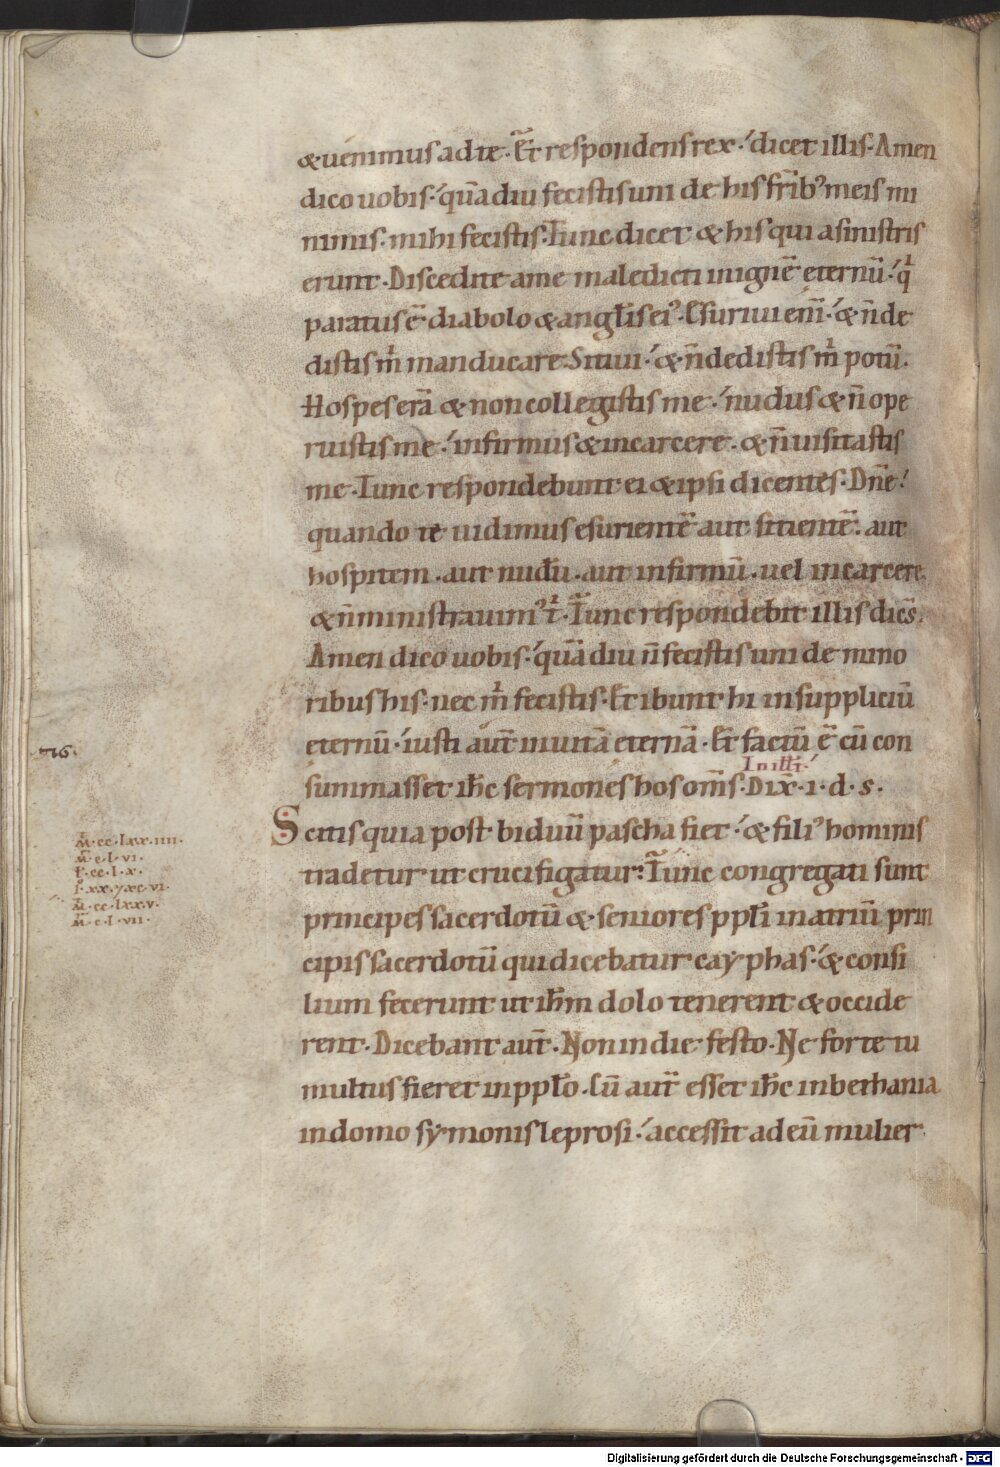 &uenimus ad te. Et respondens rex. dicet illis. Amen
dico uobis. quādiu fecistis uni de his frīb; meis mi
nimis. mihi fecistis. Tunc dicet & his qui a sinistris
erunt. Discedite a me maledicti in ignē eternū. q
paratus ē diabolo & angl̄is ei'. Esuriui eni̅. & n̄ de
distis m̄ manducare. Sitiui. & n̄ dedistis m̄ potū.
Hospes erā & non collegistis me. nudus & n̄ ope
ruistis me. infirmus & in carcere. & n̄ uisitastis
me. Tunc respondebunt ei & ipsi dicentes. Dn̄e.
quando te uidimus esurientē aut sitientē. aut
hospitem. aut nudū. aut infirmū. uel in carcere.
& n̄ ministrauim' t. Tunc respondebit illis dicēs.
Amen dico uobis. quādiu n̄ fecistis uni de mino
ribus his. nec m̄ fecistis. Et ibunt hi in suppliciū
eternū. iusti aut̄ in uitā eternā. Et factū ē cū con
In ill t̄.
summasset ih̄c sermones hos om̄s. Dix̄. i. d. s.
76.
Scitis quia post biduū pascha fiet. & fili' hominis
tradetur ut crucifigatur. Tunc congregati sunt
principes sacerdotū & seniores ppl̄i in atriū prin
cipis sacerdotū qui dicebatur cayphas. & consi
lium fecerunt ut ih̄m dolo tenerent & occide
rent. Dicebant aut̄. Non in die festo. Ne forte tu
multus fieret in ppl̄o. Cū aut̄ esset ih̄c in bethania
in domo symonis leprosi. accessit ad eū mulier
M̄. cc. lxx. iiii.
M̄. c. l. vi.
l. cc. l. x.
M̄. cc. lxx. v.
M̄. c. l. vii.
Digitalisierung gefördert durch die Deutsche Forschungsgemeinschaft - DFG